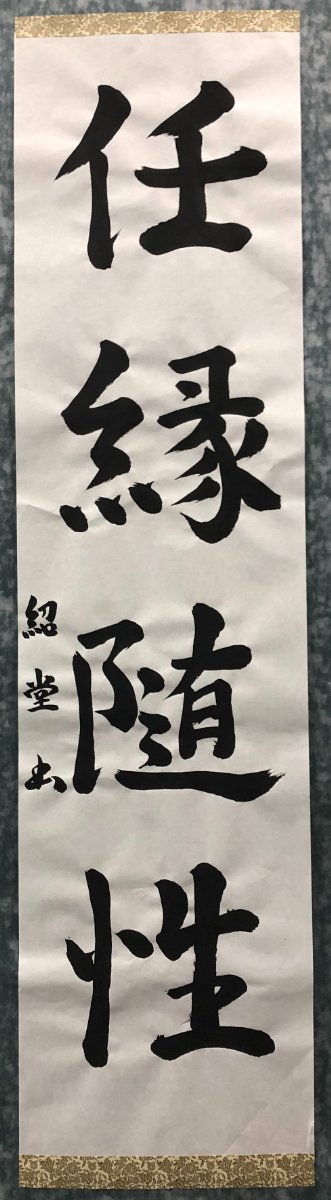 任縁随性
紹堂书